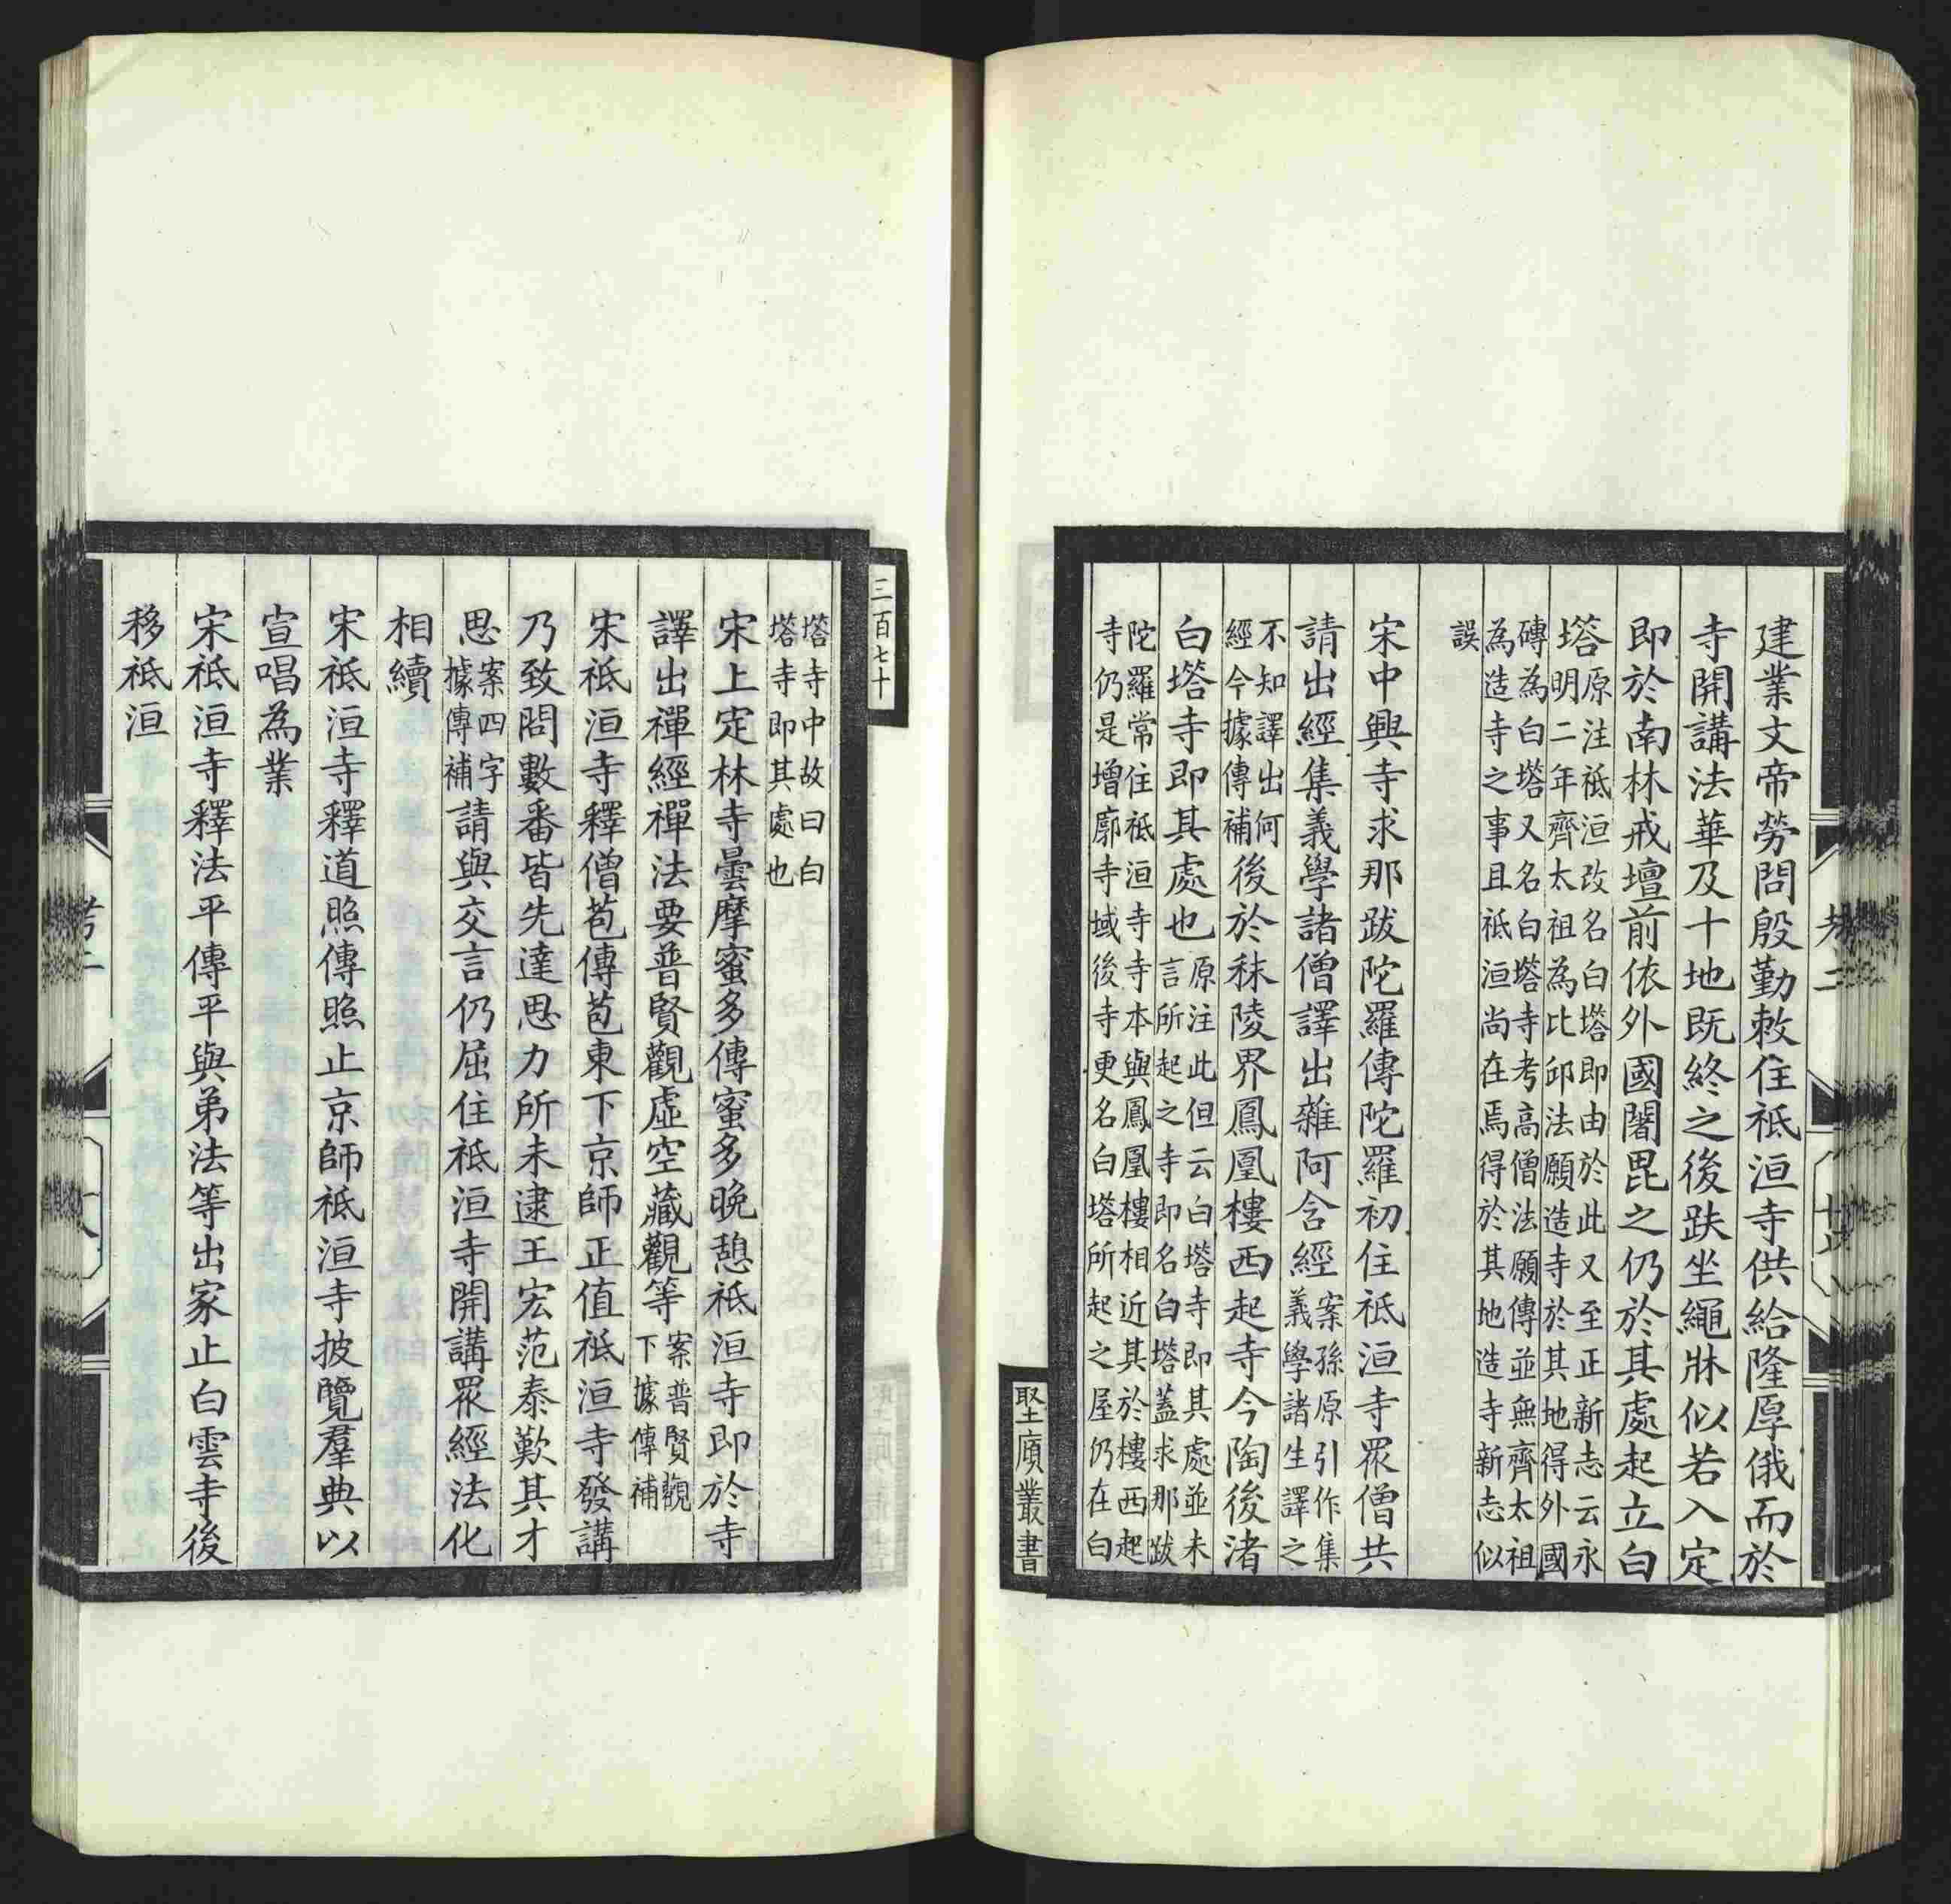 建業文帝勞問殷勤敕住祗洹寺供給隆厚俄而於
寺開講法華及十地既終之後趺坐繩牀似若入定
即於南林戒壇前依外國闍毘之仍於其處起立白
塔原注祗洹改名白塔即由於此又至正新志云永明二年齊太祖為比邱法願造寺於其地得外國
磚為白塔又名白塔寺考高僧法願傳並無齊太祖為造寺之事且祗洹尚在焉得於其地造寺新志似
誤
宋中興寺求那跋陀羅傳陀羅初住祗洹寺眾僧共
請出經集義學諸僧譯出雜阿含經案孫原引作集義學諸生譯之
不知譯出何經今據傳補後於秣陵界鳳凰樓西起寺今陶後渚
白塔寺即其處也原注此但云白塔寺即其處並未言所起之寺即名白塔蓋求那跋
陀羅常住祗洹寺寺本與鳳凰樓相近其於樓西起寺仍是增廓寺域後寺更名白塔所起之屋仍在白
堅廎叢書
三百七十
塔寺中故曰白塔寺即其處也
宋上定林寺曇摩蜜多傳蜜多晚憩祗洹寺即於寺
譯出禪經禪法要普賢觀虛空藏觀等案普賢觀下據傳補
宋祗洹寺釋僧苞傳苞東下京師正值祗洹寺發講
乃致問數番皆先達思力所未逮王宏范泰歎其才
思案四字據傳補請與交言仍屈住祗洹寺開講眾經法化
相續
宋祗洹寺釋道照傳照止京師祗洹寺披覽羣典以
宣唱為業
宋祗洹寺釋法平傳平與弟法等出家止白雲寺後
移祗洹